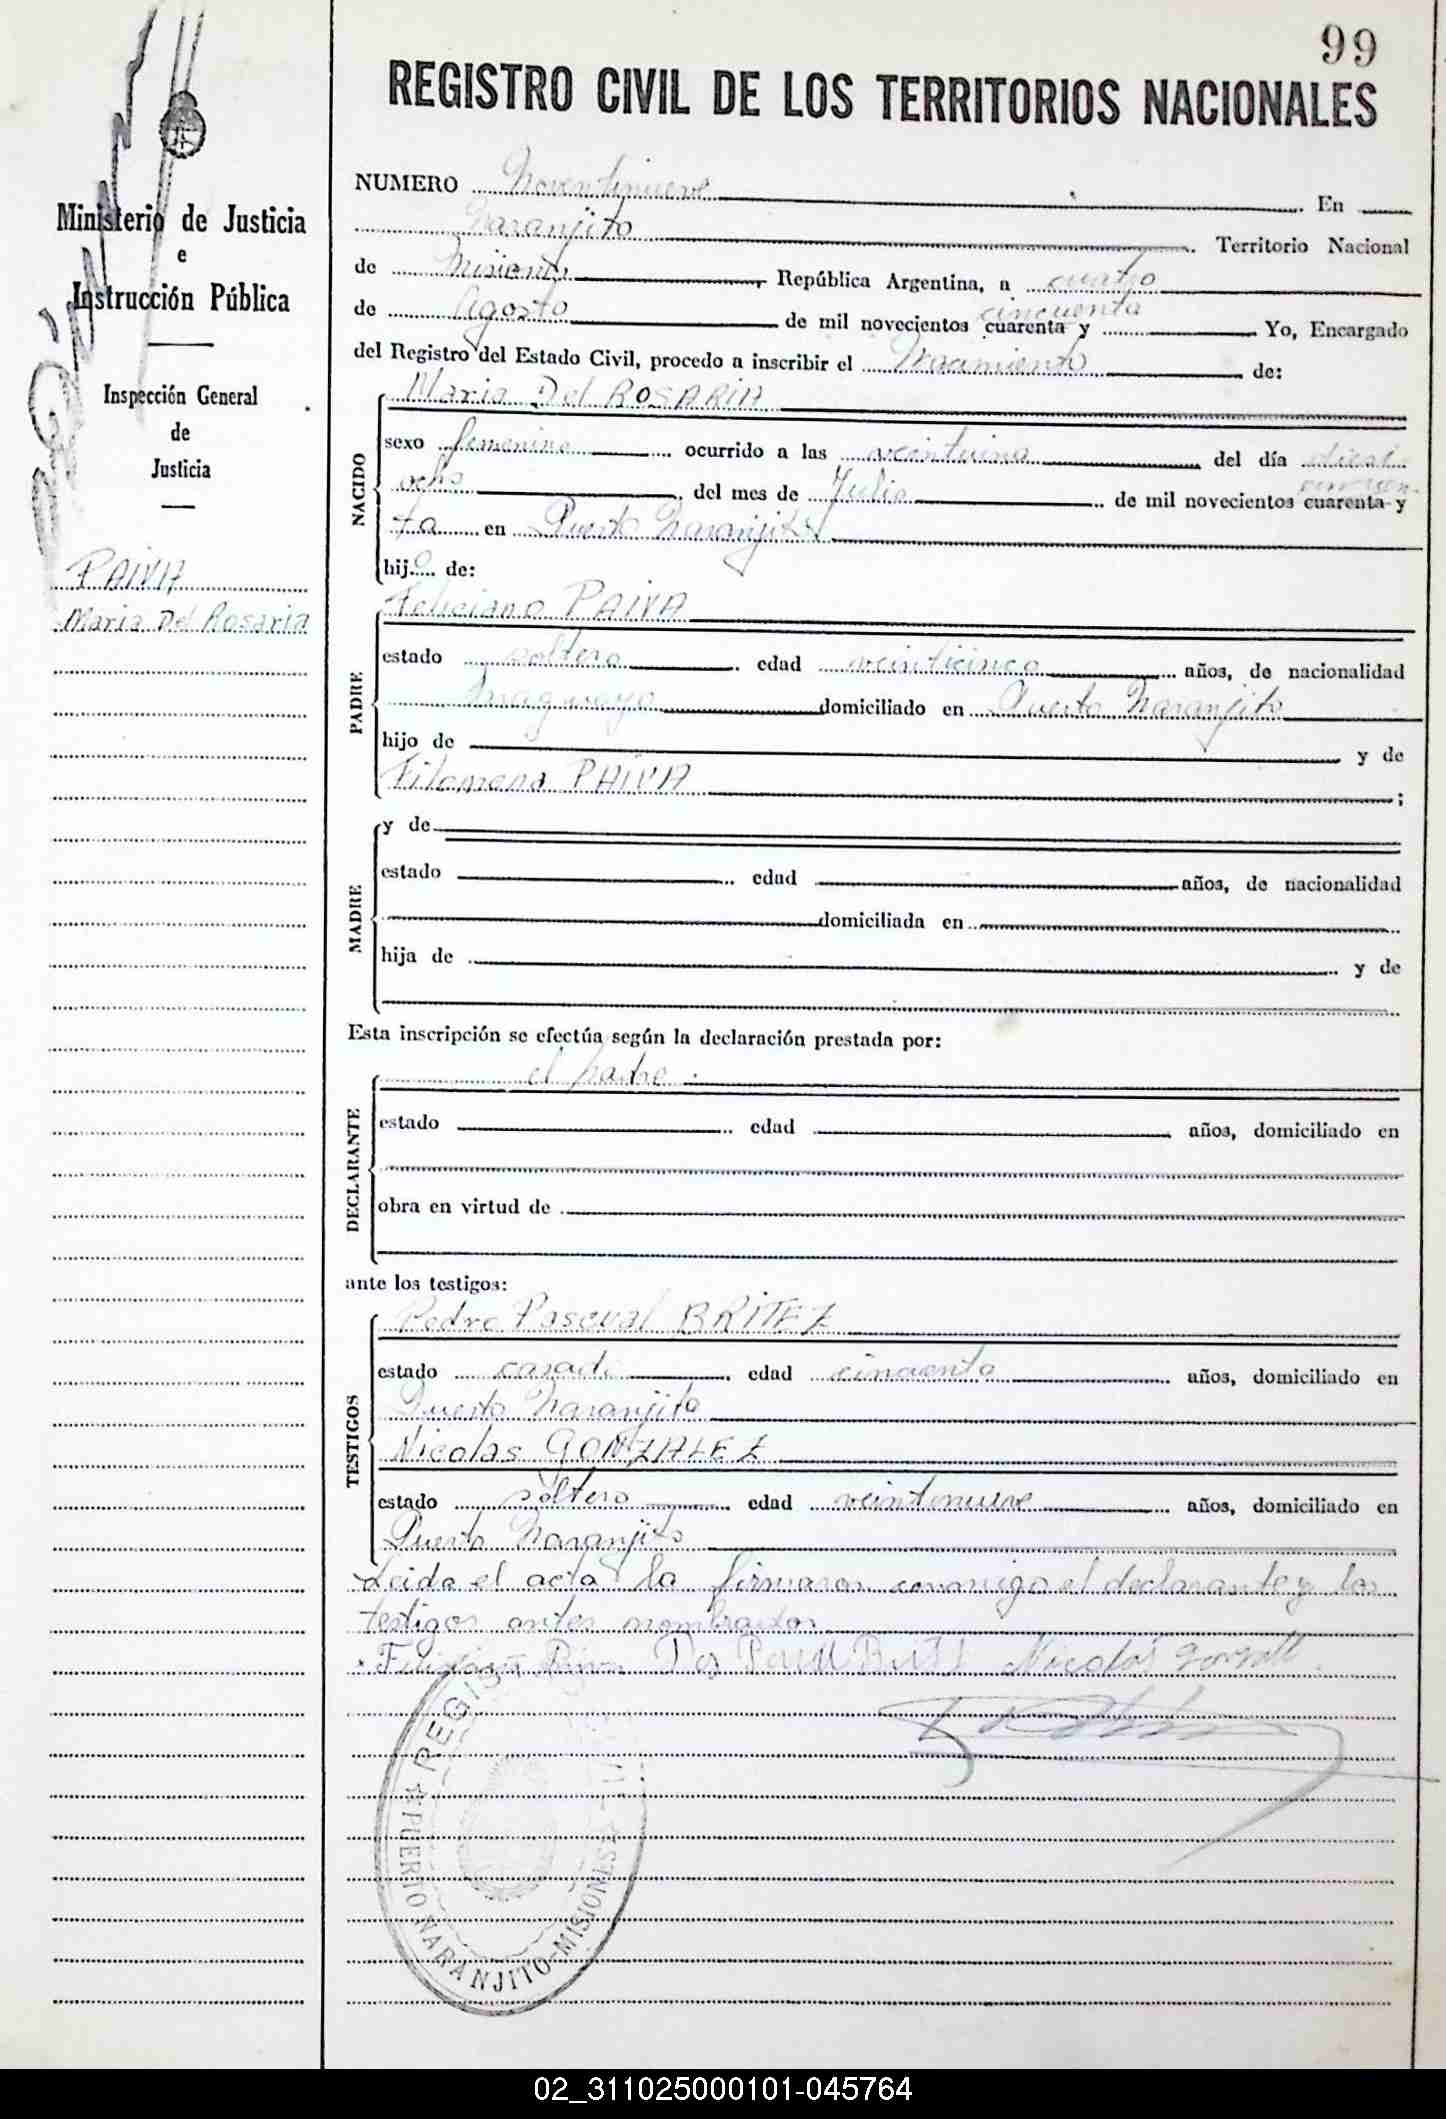 99
REGISTRO CIVIL DE LOS TERRITORIOS NACIONALES
Ministerio de Justicia
e
Instrucción Pública
Inspección General
de
Justicia
PAIVA
Maria Del Rosaria
NUMERO Noventinueve En
Naranjito Territorio Nacional
de Misiones República Argentina, a cuatro
de Agosto de mil novecientos cuarenta y cincuenta Yo, Encargado
del Registro del Estado Civil, procedo a inscribir el Nacimiento de:
NACIDO
Maria Del ROSARIA
sexo femenino ocurrido a las veintiuna del día dieci
ocho del mes de Julio de mil novecientos cuarenta y cincuen-
ta en Puerto Naranjito
hij o de:
PADRE
Feliciano PAIVA
estado soltero edad veinticinco años, de nacionalidad
Paraguayo domiciliado en Puerto Naranjito
hijo de y de
Filomena PAIVA ;
MADRE
y de
estado edad años, de nacionalidad
domiciliada en
hija de y de
Esta inscripción se efectúa según la declaración prestada por:
DECLARANTE
el padre
estado edad años, domiciliado en
obra en virtud de
ante los testigos:
TESTIGOS
Pedro Pascual BRITEZ
estado casado edad cincuenta años, domiciliado en
Puerto Naranjito
Nicolas GONZALEZ
estado soltero edad veintinueve años, domiciliado en
Puerto Naranjito
Leida el acta la firmaron conmigo el declarante y los
testigos antes nombrados
Nicolas
REGIS
PUERTO NARANJITO-MISIONES
02_311025000101-045764